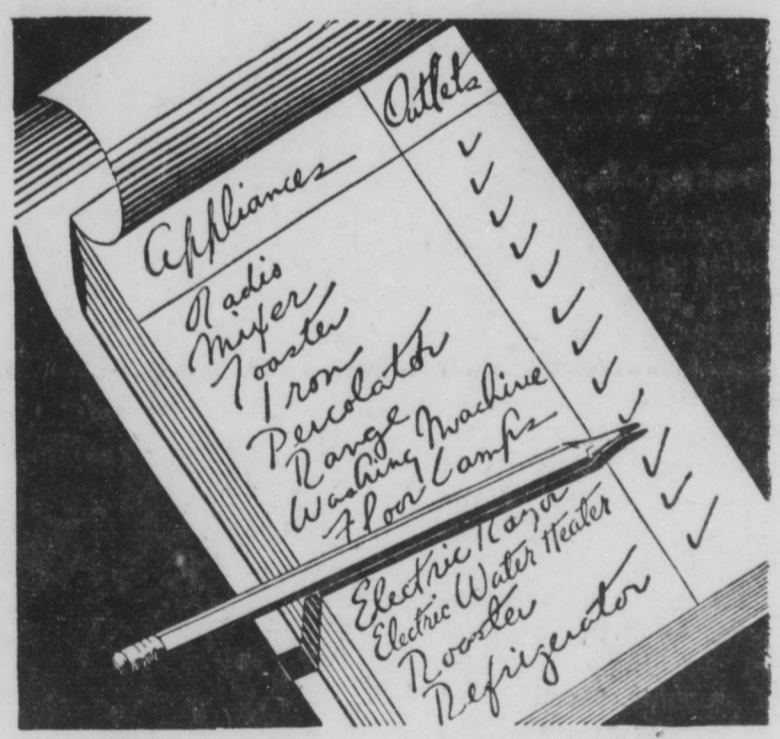 Appliances Outlets
Radio ✓
Mixer ✓
Toaster ✓
Iron ✓
Percolator ✓
Range ✓
Washing Machine ✓
Floor Lamps ✓
Electric Razor ✓
Electric Water Heater ✓
Roaster ✓
Refrigerator ✓